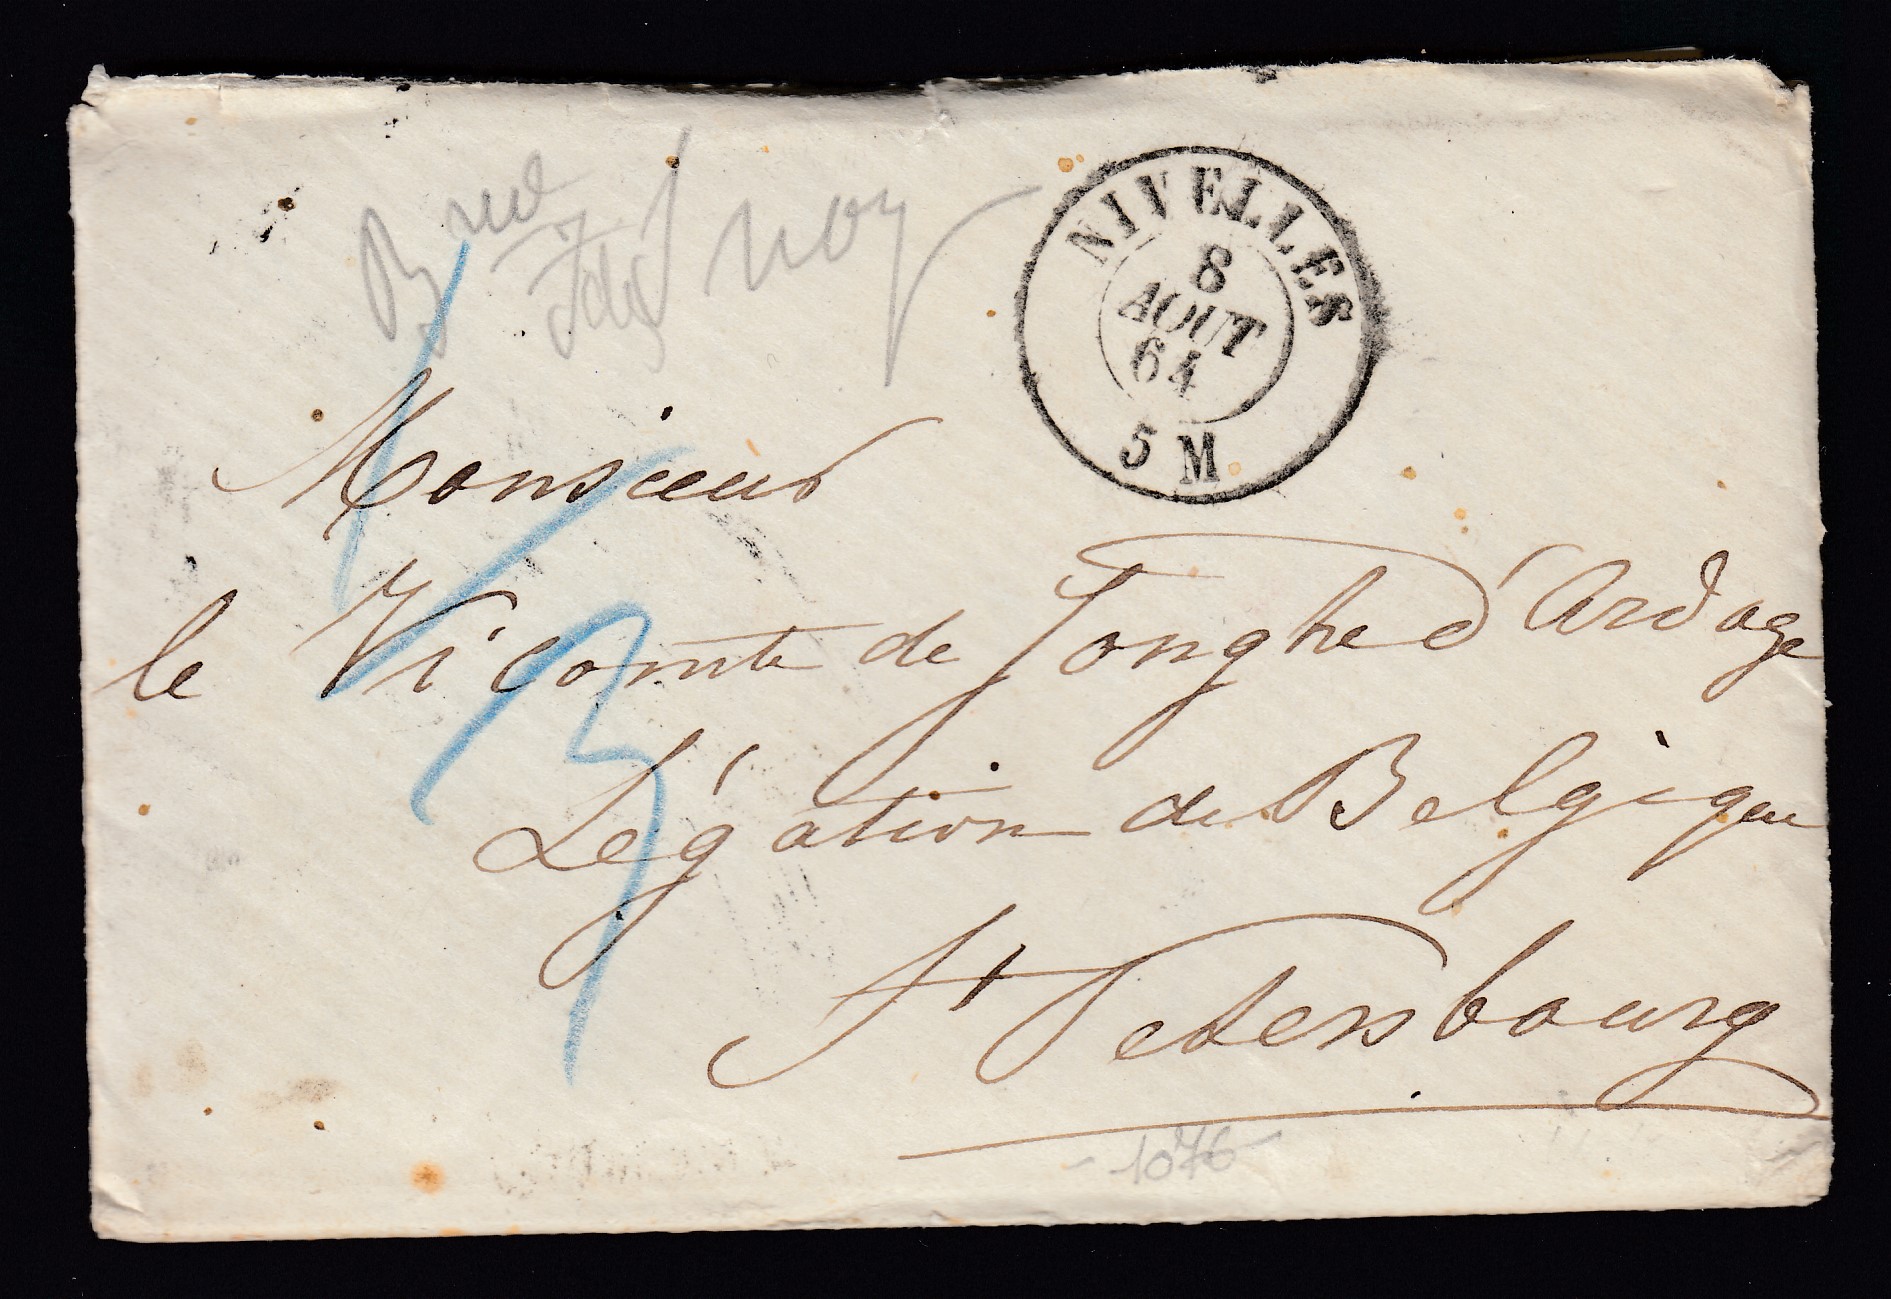 NIVELLES
8
AOUT
64
5 M
Monsieur
le Vicomte de Jonghe d'Ardoye
Légation de Belgique
St Petersbourg
1076